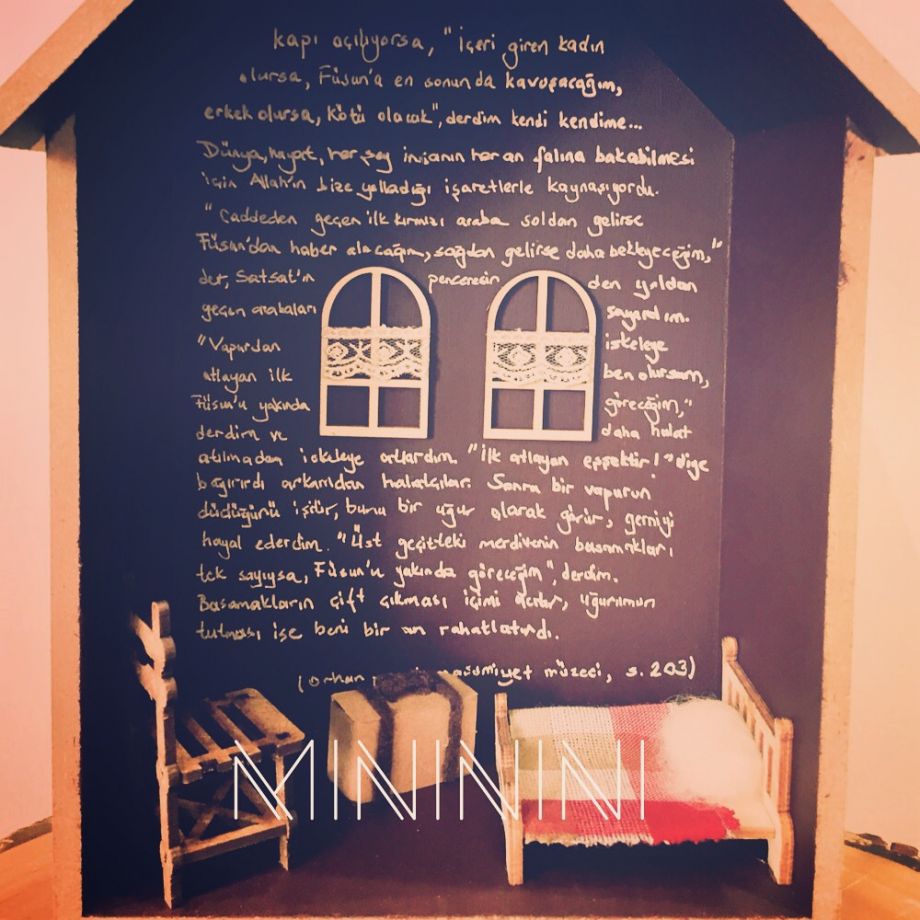 kapı açılıyorsa, "içeri giren kadın
olursa, Füsun'a en sonunda kavuşacağım,
erkek olursa, kötü olacak", derdim kendi kendime...
Dünya, hayat, her şey insanın her an falına bakabilmesi
için Allah'ın bize yolladığı işaretlerle kaynaşıyordu.
"Caddeden geçen ilk kırmızı araba soldan gelirse
Füsun'dan haber alacağım, sağdan gelirse daha bekleyeceğim,"
der, Satsat'ın penceresin den yoldan
geçen arabaları sayardım.
"Vapurdan iskeleye
atlayan ilk ben olursam,
Füsun'u yakında göreceğim,"
derdim ve daha halat
atılmadan iskeleye atlardım. "İlk atlayan eşşektir!" diye
bağırırdı arkamdan halatçılar. Sonra bir vapurun
düdüğünü işitir, bunu bir uğur olarak görür, gemiyi
hayal ederdim. "Üst geçitteki merdivenin basamakları
tek sayıysa, Füsun'u yakında göreceğim", derdim.
Basamakların çift çıkması içimi acıtır, uğurumun
tutması ise beni bir an rahatlatırdı.
(Orhan masumiyet müzesi, s. 203)
MINININI